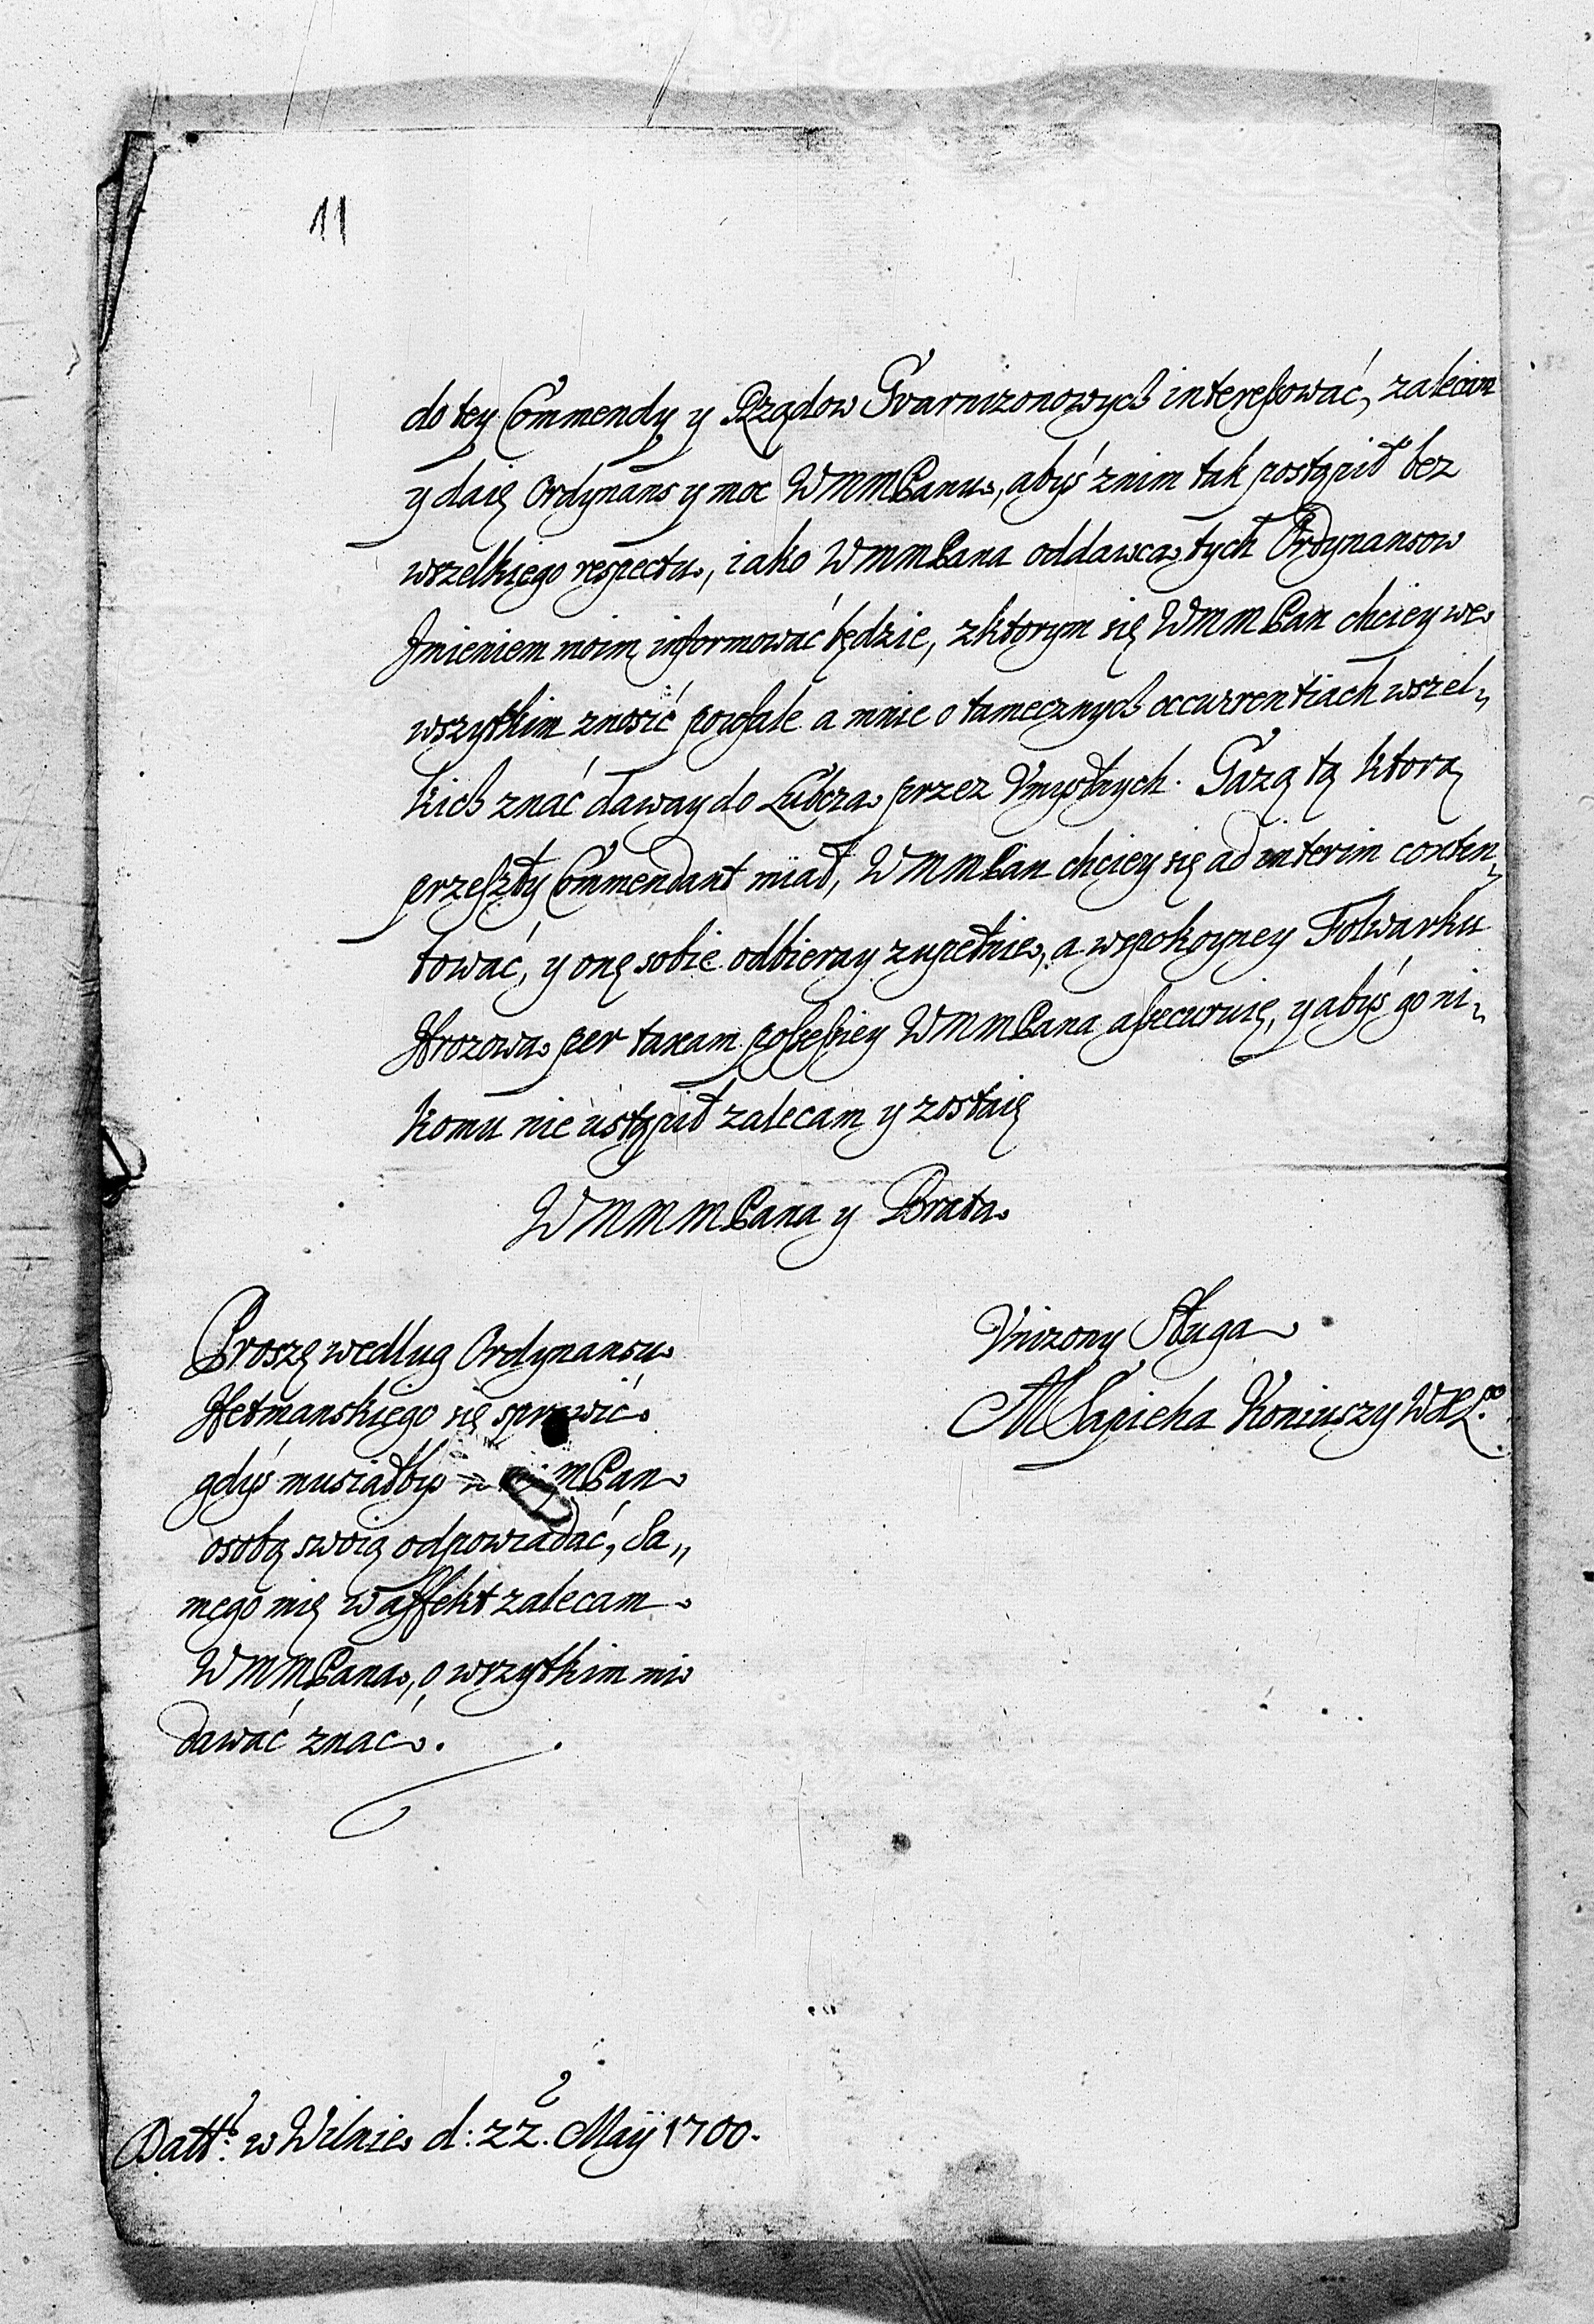 11
do tey Commendy y Rządow Gvarnizonowych interessować, zalecam
y daię Ordynans y moc WMMPanu, abyś znim tak postąpił bez
wszelkiego respectu, iako WMMPana oddawca tych Ordynansow
Imieniem moim informować będzie, zktorym się WMMPan chciey we
wszytkim znosić poufale a mnie o tamecznych occurrentiach wszel„
kich znać daway do Lubcza przez Vmyślnych. Gażą tą ktorą
przeszły Commendant miał, WMMPan chciey się ad interim conten„
tować, y onę sobie odbieray zupełnie, a wspokoyney Folwarku
Hrozowa per taxam possessiey WMMPana assecuruię, y abyś go ni„
komu nie ustąpił zalecam y zostaię
WMMMPana y Brata
Vniżony Sługa
MSapieha Koniuszy WXL.
Proszę według Ordynansu
Hetmanskiego się sprawić
gdyś musiałbyś mPan
osobą swoią odpowiadać, Sa„
mego mię w affekt zalecam
WMMPana, o wszytkim mi
dawać znać.
Datt: w Wilnie d: 22. Maÿ 1700.